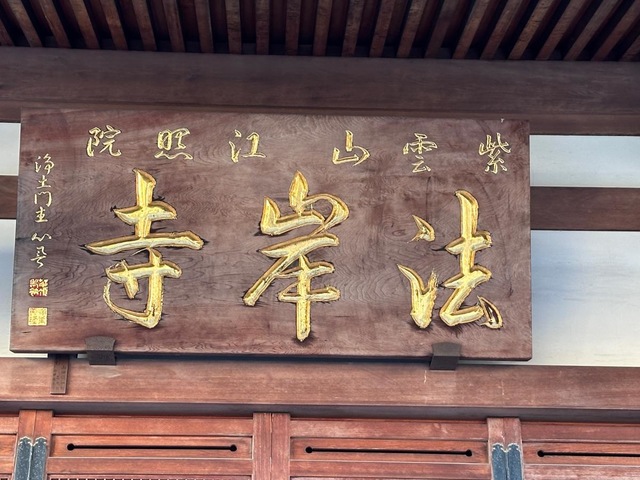 紫雲山江照院
法岸寺
浄土门主心誉